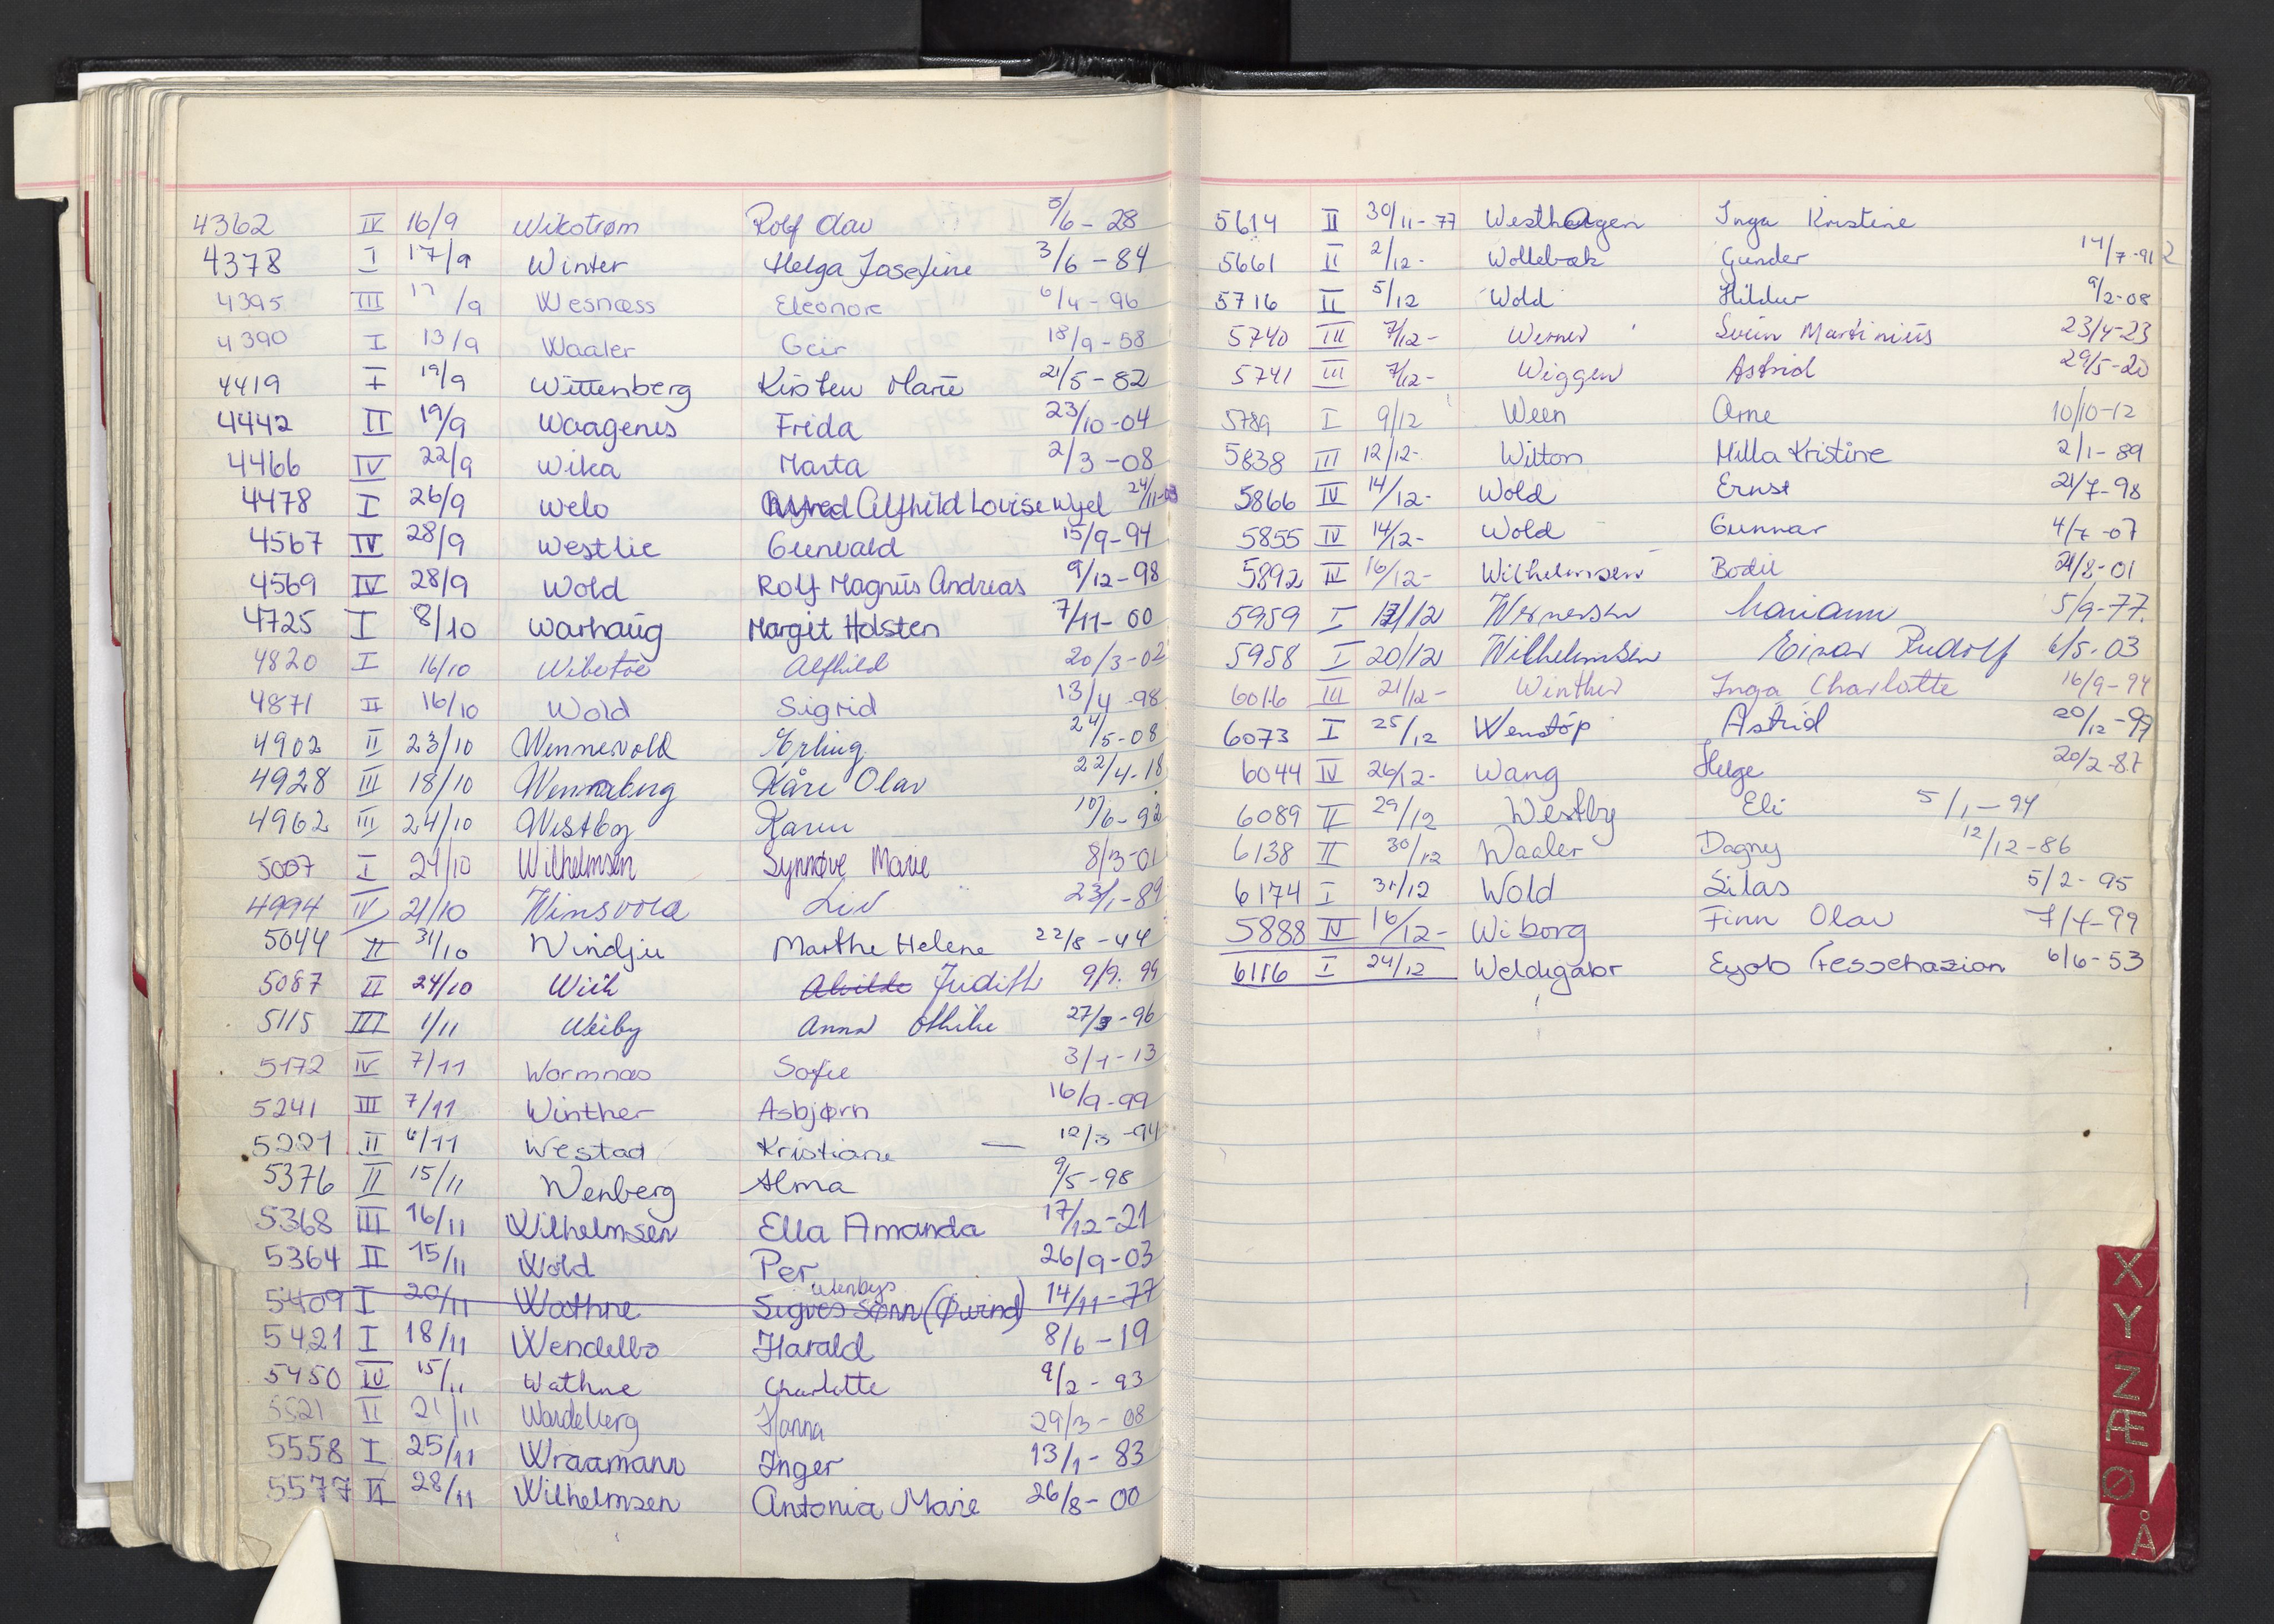 4362 IV 16/9 Wikstrøm Rolf Olav 5/6 - 28
4378 I 17/9 Winter Helga Josefine 3/6 - 84
4395 III 17/9 Wesnæss Eleonore 6/4 - 96
4390 I 13/9 Waaler Geir 18/9 - 58
4419 I 19/9 Wittenberg Kirsten Marie 21/5 - 82
4442 II 19/9 Waagenes Frida 23/10 - 04
4466 IV 22/9 Wika Marta 2/3 - 08
4478 I 26/9 Welo Alfhild Lovise Wyel 24/11-
4567 IV 28/9 Westlie Gunvald 15/9 - 94
4569 IV 28/9 Wold Rolf Magnus Andreas 9/12 - 98
4725 I 8/10 Warhaug Margit Holsten 7/11 - 00
4820 I 16/10 Wibetoe Alfhild 20/3 - 02
4871 II 16/10 Wold Sigrid 13/4 - 98
4902 II 23/10 Wennevold Erling 24/5 - 08
4928 III 18/10 Wennaberg Kåre Olav 22/4 - 18
4962 III 24/10 Westby Karen 10/6 - 92
5007 I 24/10 Wilhelmsen Synnøve Marie 8/3 - 01
4994 IV 21/10 Winsvold Liv 23/1 - 89
5044 II 31/10 Windju Marthe Helene 22/8 - 44
5087 II 24/10 Wiik Alvilde Judith 9/9. 99
5115 III 1/11 Weiby Anna Othilie 27/3 - 96
5172 IV 7/11 Wormnæs Sofie 3/1 - 13
5241 III 7/11 Winther Asbjørn 16/9 - 99
5221 II 6/11 Westad Kristiane — 12/3 - 94
5376 II 15/11 Wenberg Alma 9/5 - 98
5368 III 16/11 Wilhelmsen Ella Amanda 17/12 - 21
5364 II 15/11 Wold Per 26/9 - 03
Wenbys
5409 I 20/11 Wathne Sigves sønn (Øivind) 14/11 - 77
5421 I 18/11 Wendelbo Harald 8/6 - 19
5450 IV 15/11 Wathne Charlotte 9/2 - 93
5521 II 21/11 Wardeberg Hanna 29/3 - 08
5558 I 25/11 Wraamann Inger 13/1 - 83
5577 II 28/11 Wilhelmsen Antonia Marie 26/8 - 00
5614 II 30/11 - 77 Westhagen Inga Kristine
5661 II 2/12 - Wollebæk Gunder 14/7 - 91 2
5716 II 5/12 Wold Hildur 9/2 - 08
5740 III 7/12 - Werner Svein Martinius 23/4 - 23
5741 III 7/12 - Wiggen Astrid 29/5 - 20
5789 I 9/12 Ween Arne 10/10 - 12
5838 III 12/12 - Wilton Milla Kristine 2/1 - 89
5866 IV 14/12 - Wold Ernst 21/7 - 98
5855 IV 14/12 - Wold Gunnar 4/7 - 07
5892 IV 16/12 - Wilhelmsen Bodil 21/8 - 01
5959 I 17/12 Wernersen Mariann 5/9 - 77.
5958 I 20/12 Wilhelmsen Einar Rudolf 6/5 - 03
6016 III 21/12 - Winther Inga Charlotte 16/9 - 94
6073 I 25/12 Wenstøp Astrid 20/12 - 99
6044 IV 26/12 - Wang Helge 20/2 - 87
6089 II 29/12 Westby Eli 5/1 - 94
6138 II 30/12 Waaler Dagny 12/12 - 86
6174 I 31/12 Wold Silas 5/2 - 95
5888 IV 16/12 - Wiborg Finn Olav 7/7 - 99
6116 I 24/12 Weldegabr Eyob Fessehazion 6/6 - 53
X
Y
Z
Æ
Ø
Å